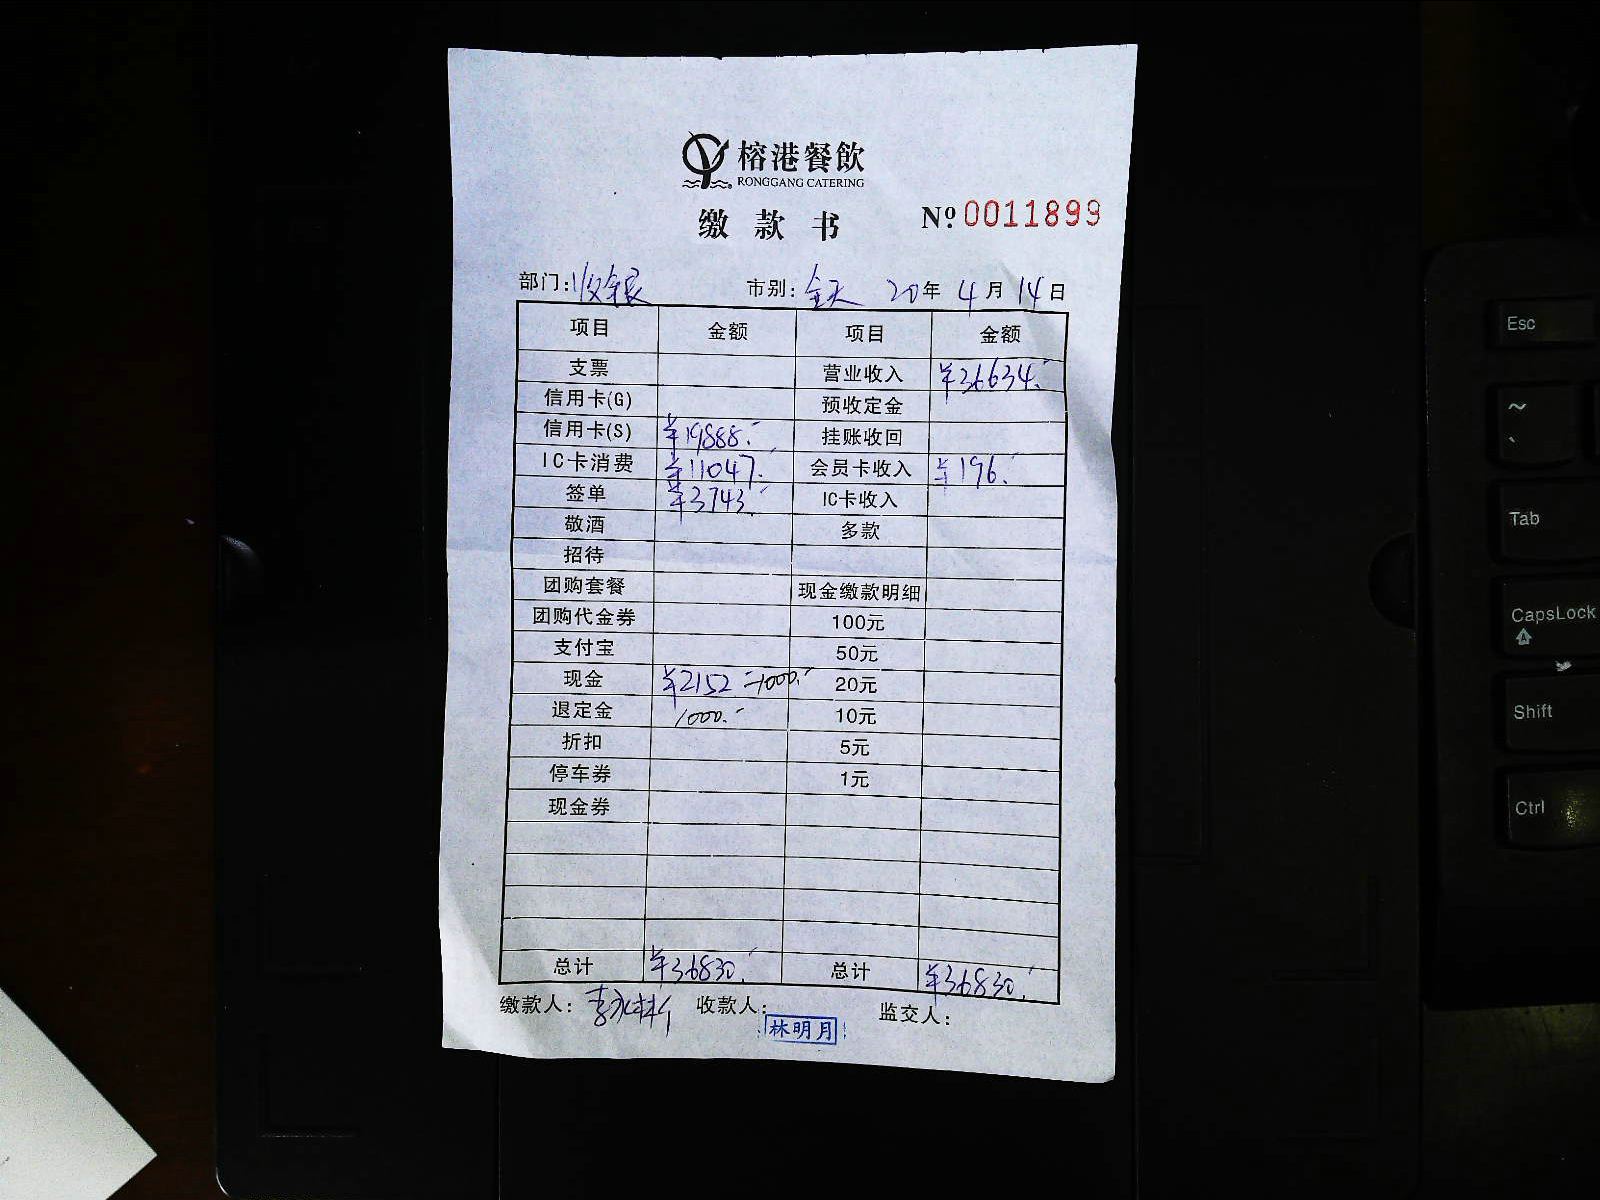 榕港餐飲
RONGGANG CATERING
缴款书 Nº 0011899
部门: 收银 市别: 全天 20年 4月 14日
项目 金额 项目 金额
支票 营业收入 ¥36634.-
信用卡(G) 预收定金
信用卡(S) ¥19888.- 挂账收回
IC卡消费 ¥11047.- 会员卡收入 ¥196.-
签单 ¥3743.- IC卡收入
敬酒 多款
招待
团购套餐 现金缴款明细
团购代金券 100元
支付宝 50元
现金 ¥2152 -1000.- 20元
退定金 1000.- 10元
折扣 5元
停车券 1元
现金券
总计 ¥36830.- 总计 ¥36830.-
缴款人: 收款人: 林明月 监交人:
Esc
~
`
Tab
CapsLock
Shift
Ctrl